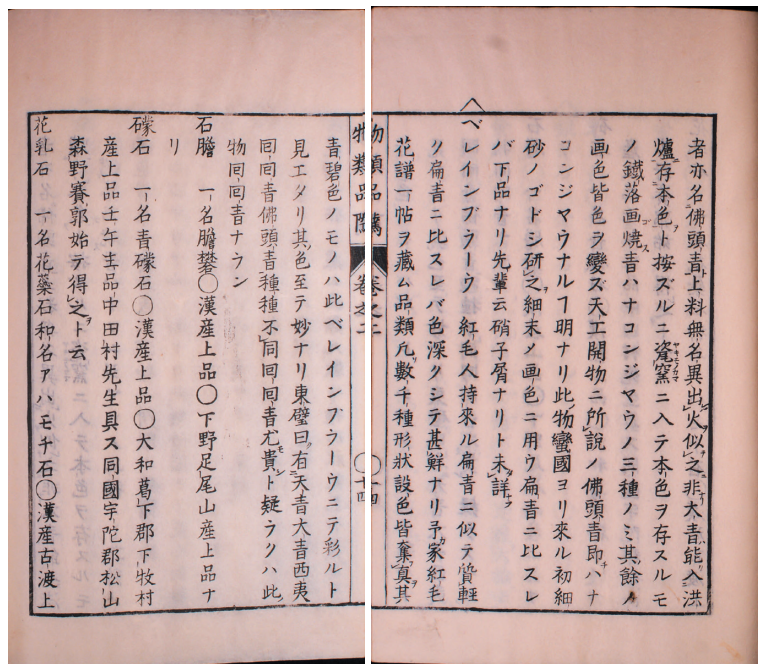 者亦名佛頭青ト上料無名異出火似ヲ之非大青能入洪
爐存本色ヲト按ズルニ瓷窯ヤキモノカマニ入テ本色ヲ存スルモ
ノ鐵落画燒青ゴスハナコンジマウノ三種ノミ其餘ノ
画色皆色ヲ變ズ天工開物ニ所説ノ佛頭青即ハナ
コンジマウナルフ明ナリ此物蠻國ヨリ來ル初細
砂ノゴトシ研之細末ノ画色ニ用ウ扁青ニ比スレ
バ下品ナリ先輩云硝子屑ナリト未詳
ベレインブラーウ 紅毛人持來ル扁青ニ似テ質輕
ク扁青ニ比スレバ色深クシテ甚鮮ナリ予家紅毛
花譜一帖ヲ藏ム品類凡數千種形狀設色皆奪真其
物類品隲 卷之二 〇十四
青碧色ノモノハ此ベレインブラーウニテ彩ルト
見エタリ其色至テ妙ナリ東壁曰有天青大青西夷
回回青佛頭青種種不同回回青尤貴モシト疑ラクハ此
物回回青ナラン
石膽 一名膽礬〇漢産上品〇下野足尾山産上品ナ
リ
礞石 一名青礞石〇漢産上品〇大和葛下郡下牧村
産上品壬午主品中田村先生具ス同國宇陀郡松山
森野賽郭始テ得之ヲト云
花乳石 一名花蘂石和名アハモチ石〇漢産古渡上